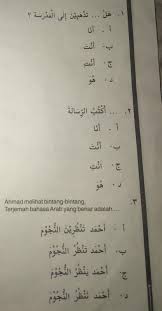 ١. هَلْ ... تَذْهَبِيْنَ إِلَى الْمَدْرَسَةِ ؟
أ . أَنَا
ب. أَنْتَ
ج. أَنْتِ
د . هُوَ
٢. ... أَكْتُبُ الرِّسَالَةَ
أ . أَنَا
ب. أَنْتَ
ج. أَنْتِ
د . هُوَ
٣. Ahmad melihat bintang-bintang,
Terjemah bahasa Arab yang benar adalah....
أ . أَحْمَد تَنْظُرِيْنَ النُّجُوْمَ
ب. أَحْمَد تَنْظُرُ النُّجُوْمَ
ج. أَحْمَد يَنْظُرُ النُّجُوْمَ
د . أَحْمَد نَنْظُرُ النُّجُوْمَ